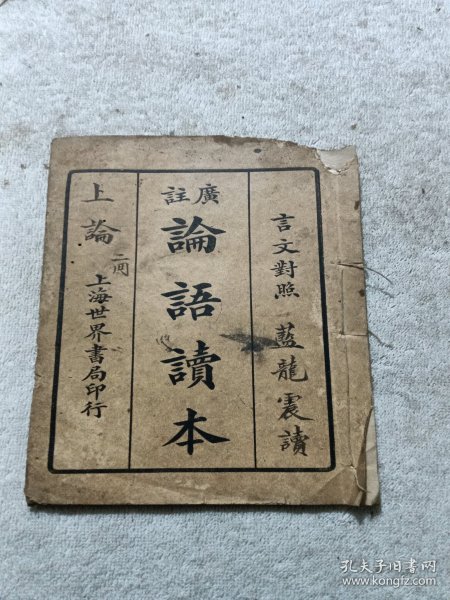 言文對照
藍龍震讀
廣註
論語讀本
上論
上海世界書局印行
孔夫子旧书网
www.kongfz.com